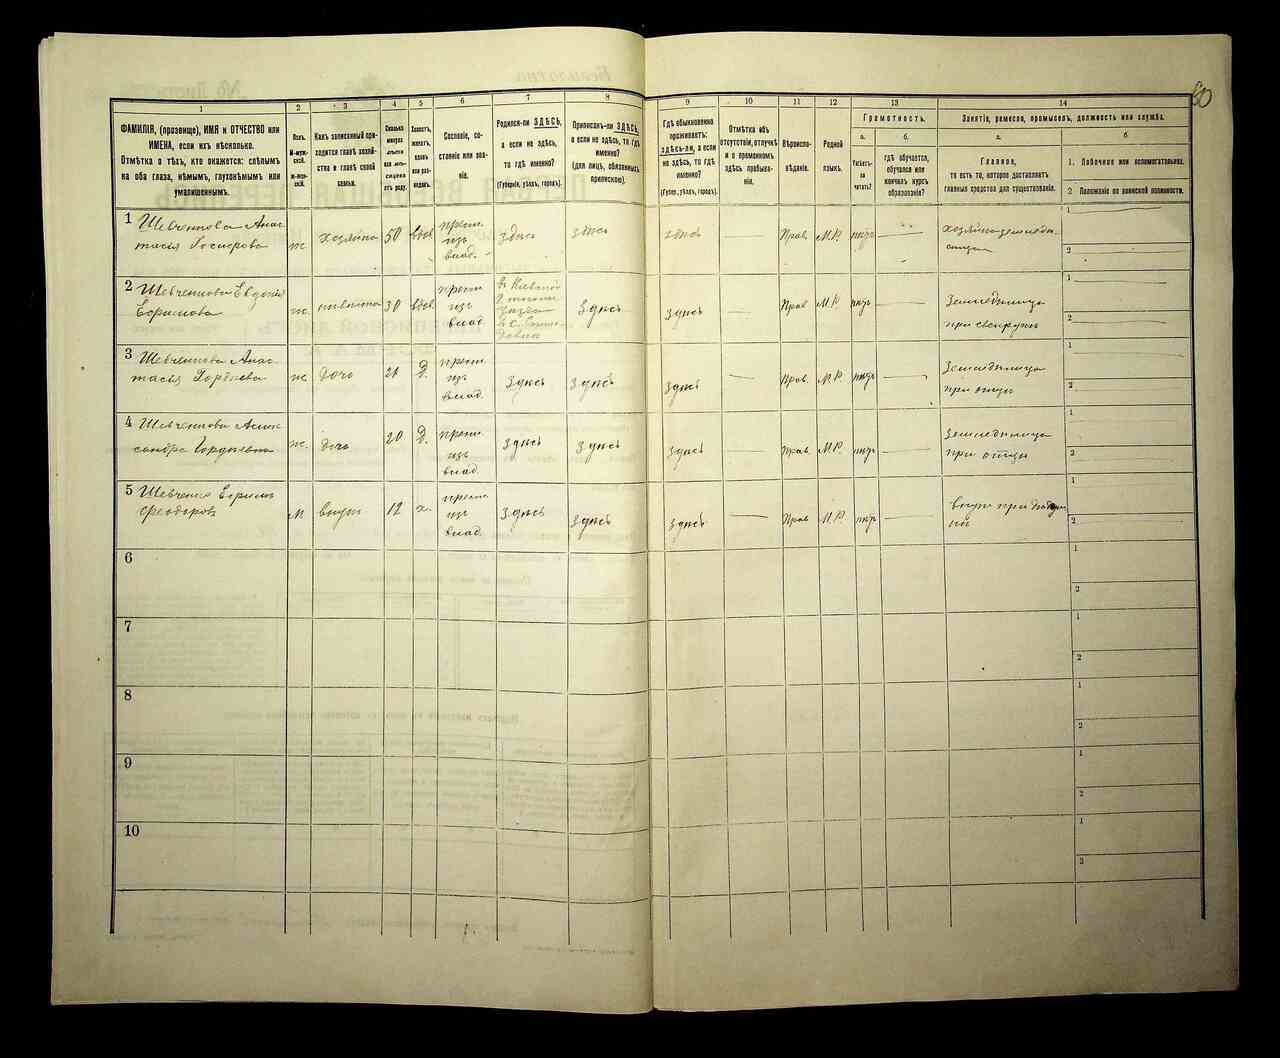 80
1
2
3
4
5
6
7
8
9
10
11
12
13
14
ФАМИЛІЯ, (прозвище), ИМЯ и ОТЧЕСТВО или
ИМЕНА, если ихъ нѣсколько.
Отмѣтка о тѣхъ, кто окажется: слѣпымъ
на оба глаза, нѣмымъ, глухонѣмымъ или
умалишеннымъ.
Полъ.
М-муж-
ской.
Ж-жен-
скій.
Какъ записанный при-
ходится главѣ хозяй-
ства и главѣ своей
семьи.
Сколько
минуло
лѣтъ
или мѣ-
сяцевъ
отъ роду.
Холостъ,
женатъ,
вдовъ
или раз-
веденъ.
Сословіе, со-
стояніе или зва-
ніе.
Родился-ли ЗДѢСЬ,
а если не здѣсь,
то гдѣ именно?
(Губернія, уѣздъ, городъ).
Приписанъ-ли ЗДѢСЬ,
а если не здѣсь, то гдѣ
именно?
(для лицъ, обязанныхъ
припискою).
Гдѣ обыкновенно
проживаетъ:
здѣсь-ли, а если
не здѣсь, то гдѣ
именно?
(Губер., уѣздъ, городъ).
Отмѣтка объ
отсутствіи, отлучкѣ
и о временномъ
здѣсь пребыва-
ніи.
Вѣроиспо-
вѣданіе.
Родной
языкъ.
Грамотность.
а.
Умѣетъ-
ли
читать?
б.
гдѣ обучается,
обучался или
кончилъ курсъ
образованія?
Занятіе, ремесло, промыселъ, должность или служба.
а.
Главное,
то есть то, которое доставляетъ
главныя средства для существованія.
б
1. Побочное или вспомогательное.
2 Положеніе по воинской повинности.
1 Шевченкова Анас-
тасія
ж. хозяйка 50 вдов.
крест.
изъ
влад.
здѣсь здѣсь здѣсь — Прав. М.Р. нѣтъ —
хозяйка
1
2
2 Шевченкова Евдокія
Ефимова
ж. невѣстка 30 вдов.
крест.
изъ
влад.
здѣсь здѣсь — Прав М.Р. нѣтъ —
при свекрухѣ
1
2
3 Шевченкова Анас-
тасія Гордѣева
ж. дочь 21 Д.
крест.
изъ
влад.
здѣсь здѣсь здѣсь — Прав. М.Р. нѣтъ —
при
1
2
4 Шевченкова Алек
сандра Гордѣевна
ж. дочь 20 Д.
крест.
изъ
влад.
здѣсь здѣсь здѣсь — Прав. М.Р. нѣтъ —
при
1
2
5 Шевченко Ефимъ
Феодоровъ
м внукъ 12 х.
крест.
изъ
влад.
здѣсь здѣсь здѣсь — Прав М.Р. нѣтъ —
внукъ при
1
2
6
1
2
7
1
2
8
1
2
9
1
2
10
1
2